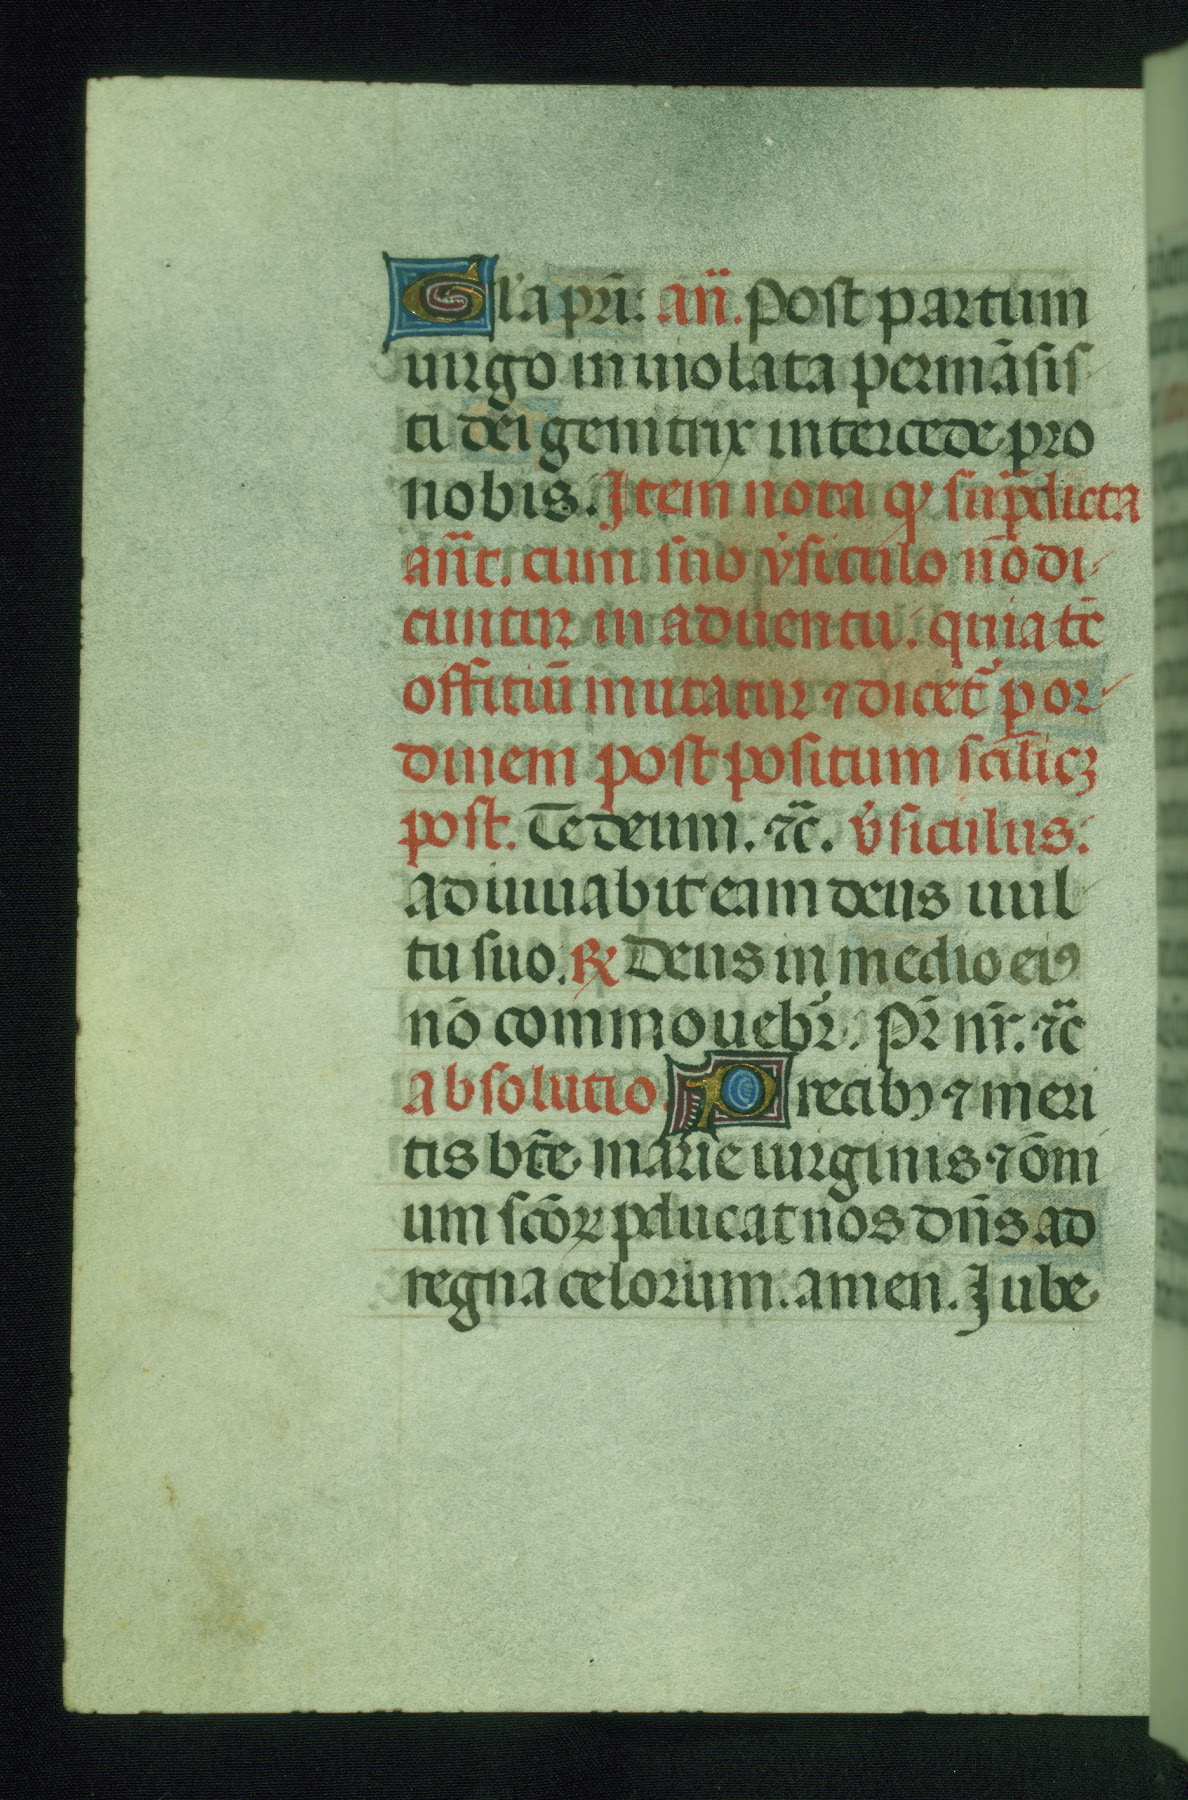 Gl'a pr̄i. an̄. Post partum
uirgo inuiolata permāsis
ti dēi genitrix intercede pro
nobis. Item nota ꝙ sup̄dicta
an̄t. cum suo v̓siculo nō di
cuntur in aduentu. quia tc̄
offitiū mutatur ⁊ dicet᷑ ꝑ or
dinem post positum scilicꝫ
post. Te deum. ⁊c̄. v̓siculus.
adiuuabit eam deus uul
tu suo. ℞ Deus in medio eiꝰ
nō commouebr̄. Pr̄ nr̄. ⁊c̄
absolutio. Precibꝫ ⁊ meri
tis bt̄e marie uirginis ⁊ om̄i
um sc̄oꝝ ꝑducat nos dn̄s ad
regna celorum. amen. Iube